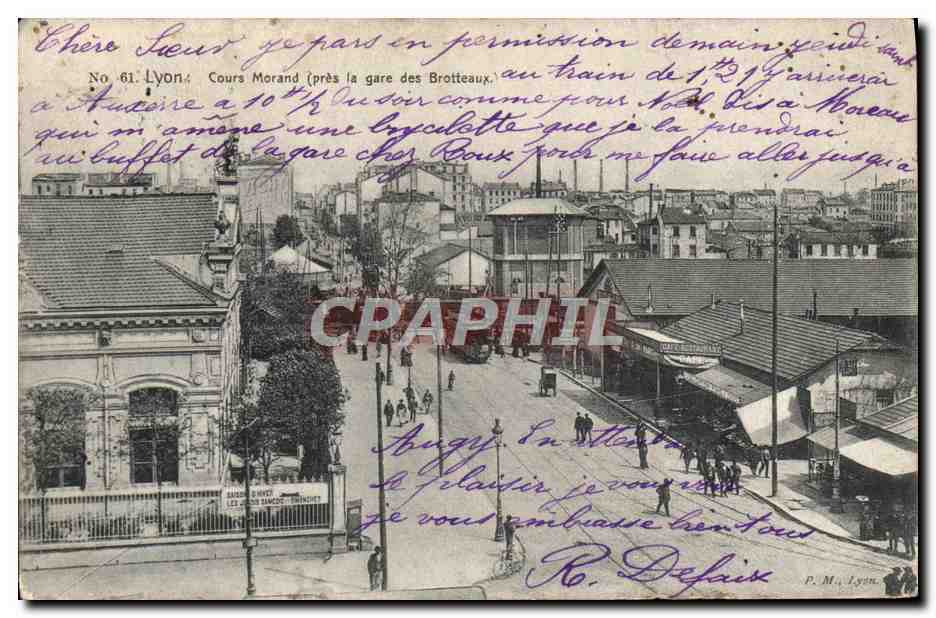 Chère Sœur je pars en permission demain jeudi
No 61. Lyon: Cours Morand (près la gare des Brotteaux.)
au train de 1H 21 j'y arriverai
a Auxerre a 10H 1/2 du soir comme pour Noël. Dis a Moreau
qui m'amène une bycalette que je la prendrai
au buffet de la gare chez Roux pour me faie aller jusqu'a
CRAPHIL
CAFÉ-RESTAURANT
CAFÉ
Augy. En attendant
le plaisir de vous
je vous embrasse bien tous
R. Defaix
SAISON D'HIVER
LES JEUDIS SAMEDIS DIMANCHES
P. M., Lyon.